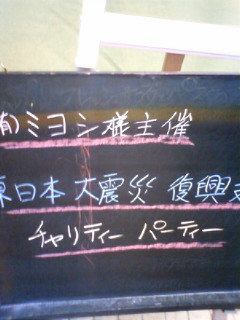 有)ミヨシ様主催
東日本大震災 復興支
チャリティー パーティー